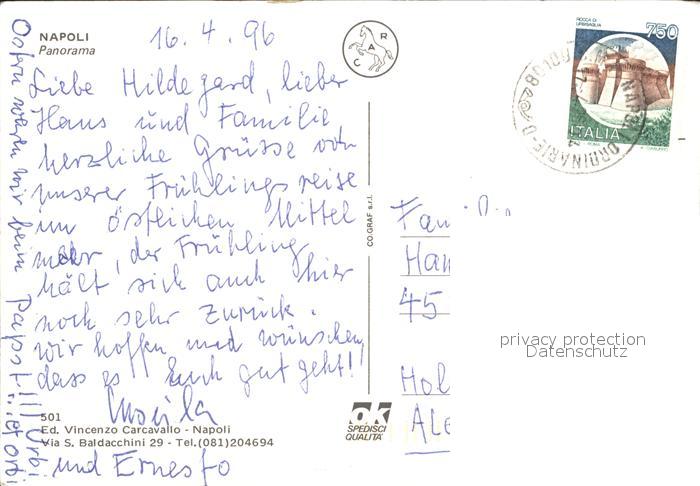 NAPOLI
Panorama
16. 4. 96
Liebe Hildegard, lieber
Hans und Familie
herzliche Grüsse von
unserer Frühlingsreise
im östlichen Mittel
meer, der Frühling
hält sich auch hier
noch sehr zurück.
wir hoffen und wünschen,
dass es Euch gut geht!
und Ernesto
Ostern waren wir beim Papst!!! Urbi
... et orbi
501
Ed. Vincenzo Carcavallo - Napoli
Via S. Baldacchini 29 - Tel.(081)204694
CAR
CO.GRAF s.r.l.
ok
SPEDISCI
QUALITA'
ROCCA DI
URBISAGLIA
750
ITALIA
NAPOLI ORDINARIE
Fam
Han
45
Hol
Ale
privacy protection
Datenschutz